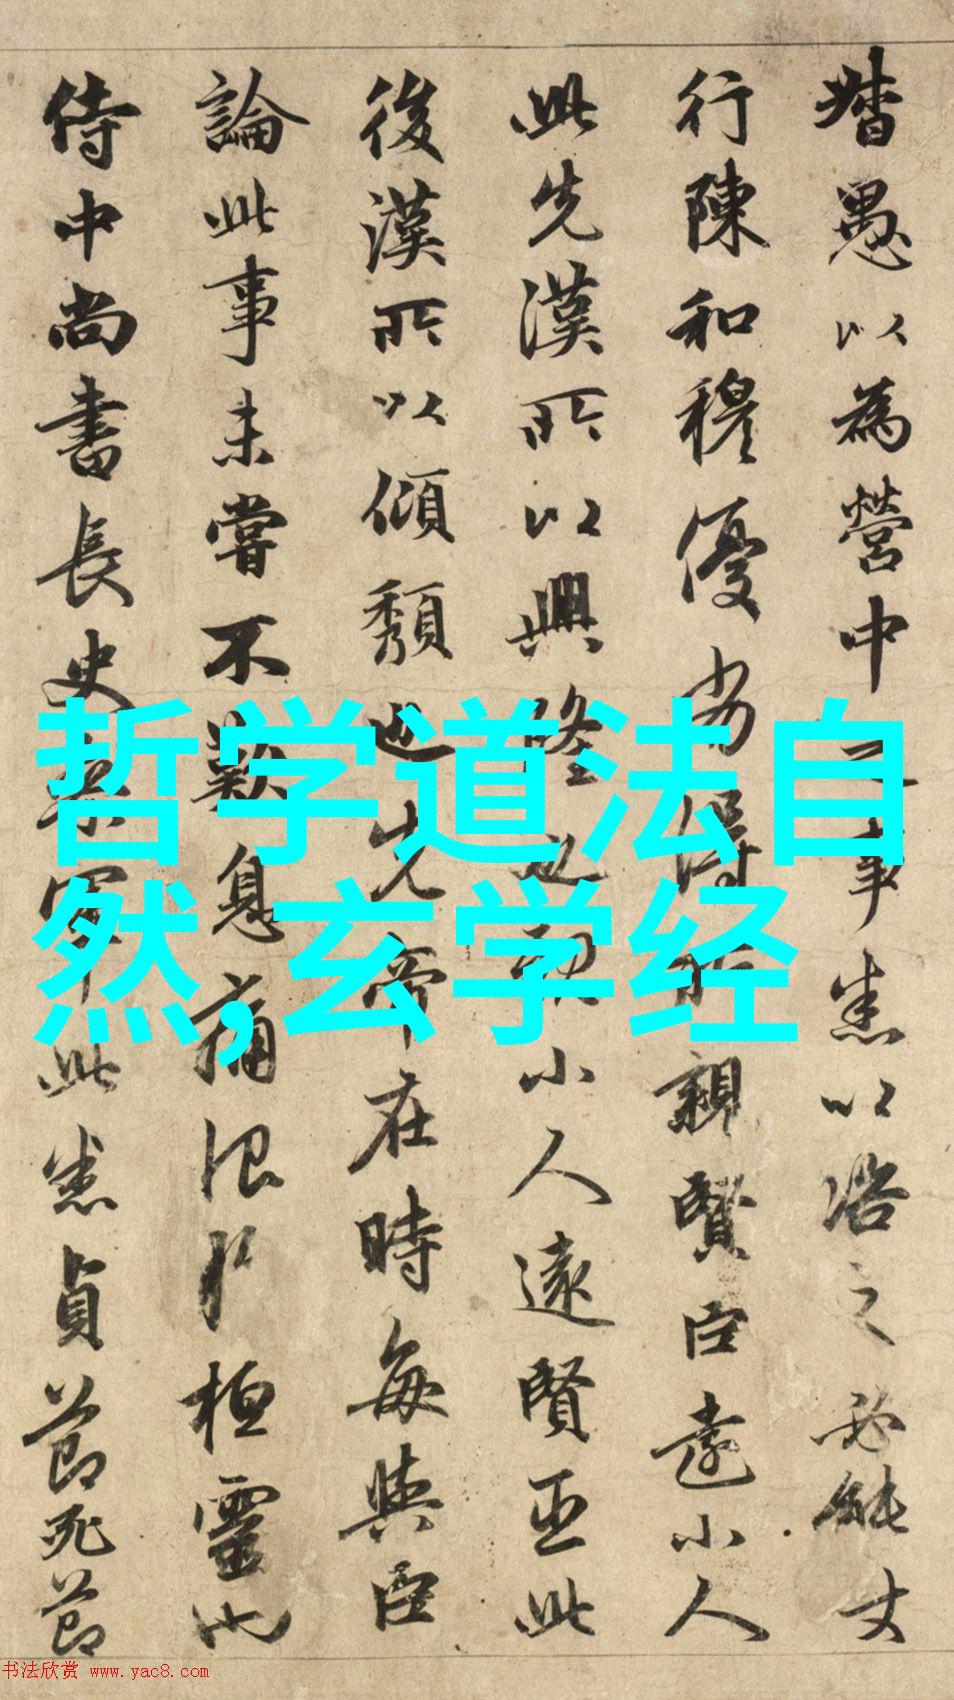 督愚以為營中之事悉以諮之必能使
行陳和穆優劣得所親賢臣遠小人
此先漢所以興隆也親小人遠賢臣此
後漢所以傾頹也先帝在時每與臣
論此事未嘗不歎息痛恨於桓靈也
侍中尚書長史參軍此悉貞節死節
哲学道法自
然,玄学经
书法欣赏 www.yac8.com